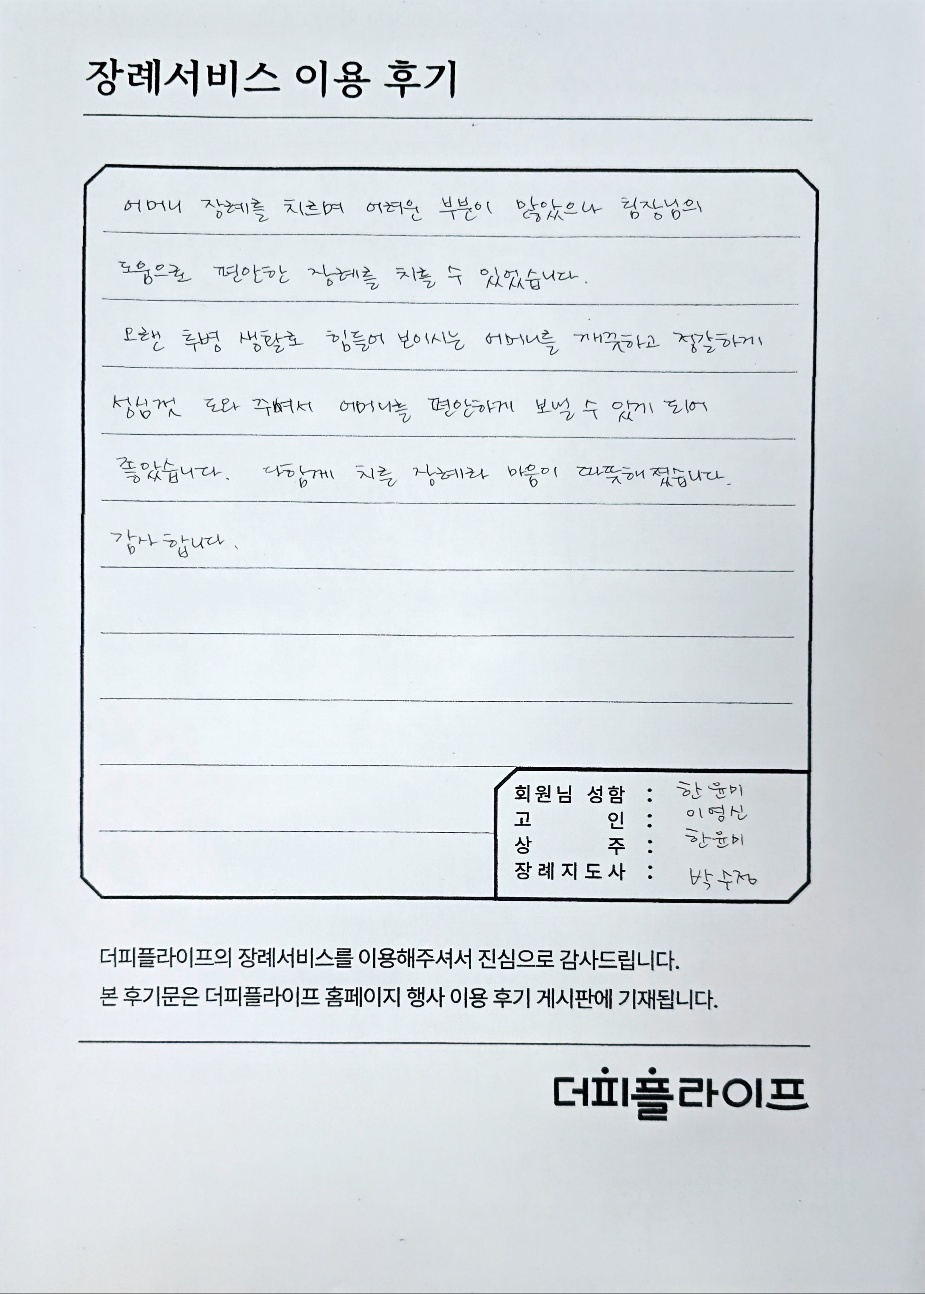 장례서비스 이용 후기
어머니 장례를 치르며 어려운 부분이 많았으나 팀장님의
도움으로 편안한 장례를 치를 수 있었습니다.
오랜 투병 생활로 힘들어 보이시는 어머니를 깨끗하고 정갈하게
성심껏 도와 주셔서 어머니를 편안하게 보낼 수 있게 되어
좋았습니다. 다함께 치른 장례라 마음이 따뜻해졌습니다.
감사합니다.
회원님 성함 : 한윤미
고 인 : 이영신
상 주 : 한윤미
장례지도사 : 박수정
더피플라이프의 장례서비스를 이용해주셔서 진심으로 감사드립니다.
본 후기문은 더피플라이프 홈페이지 행사 이용 후기 게시판에 기재됩니다.
더피플라이프